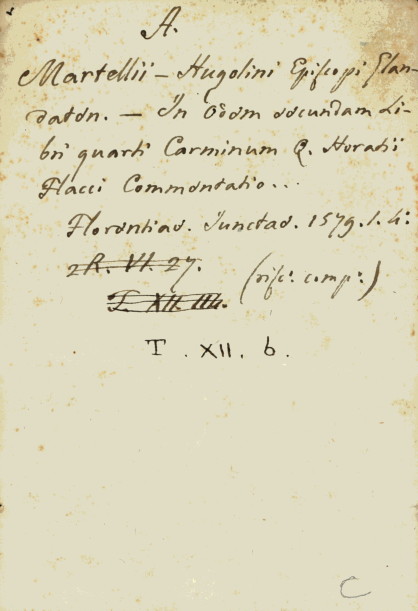 A.
Martellii - Hugolini Episcopi Glan-
daten. - In Odem secundam Li-
bri quarti Carminum Q. Horatii
Flacci Commentatio...
Florentiae. Junctae. 1579. 1. 4:
2R. VI. 27.
(risc: comp:)
T. XII.
T. XII. b.
C